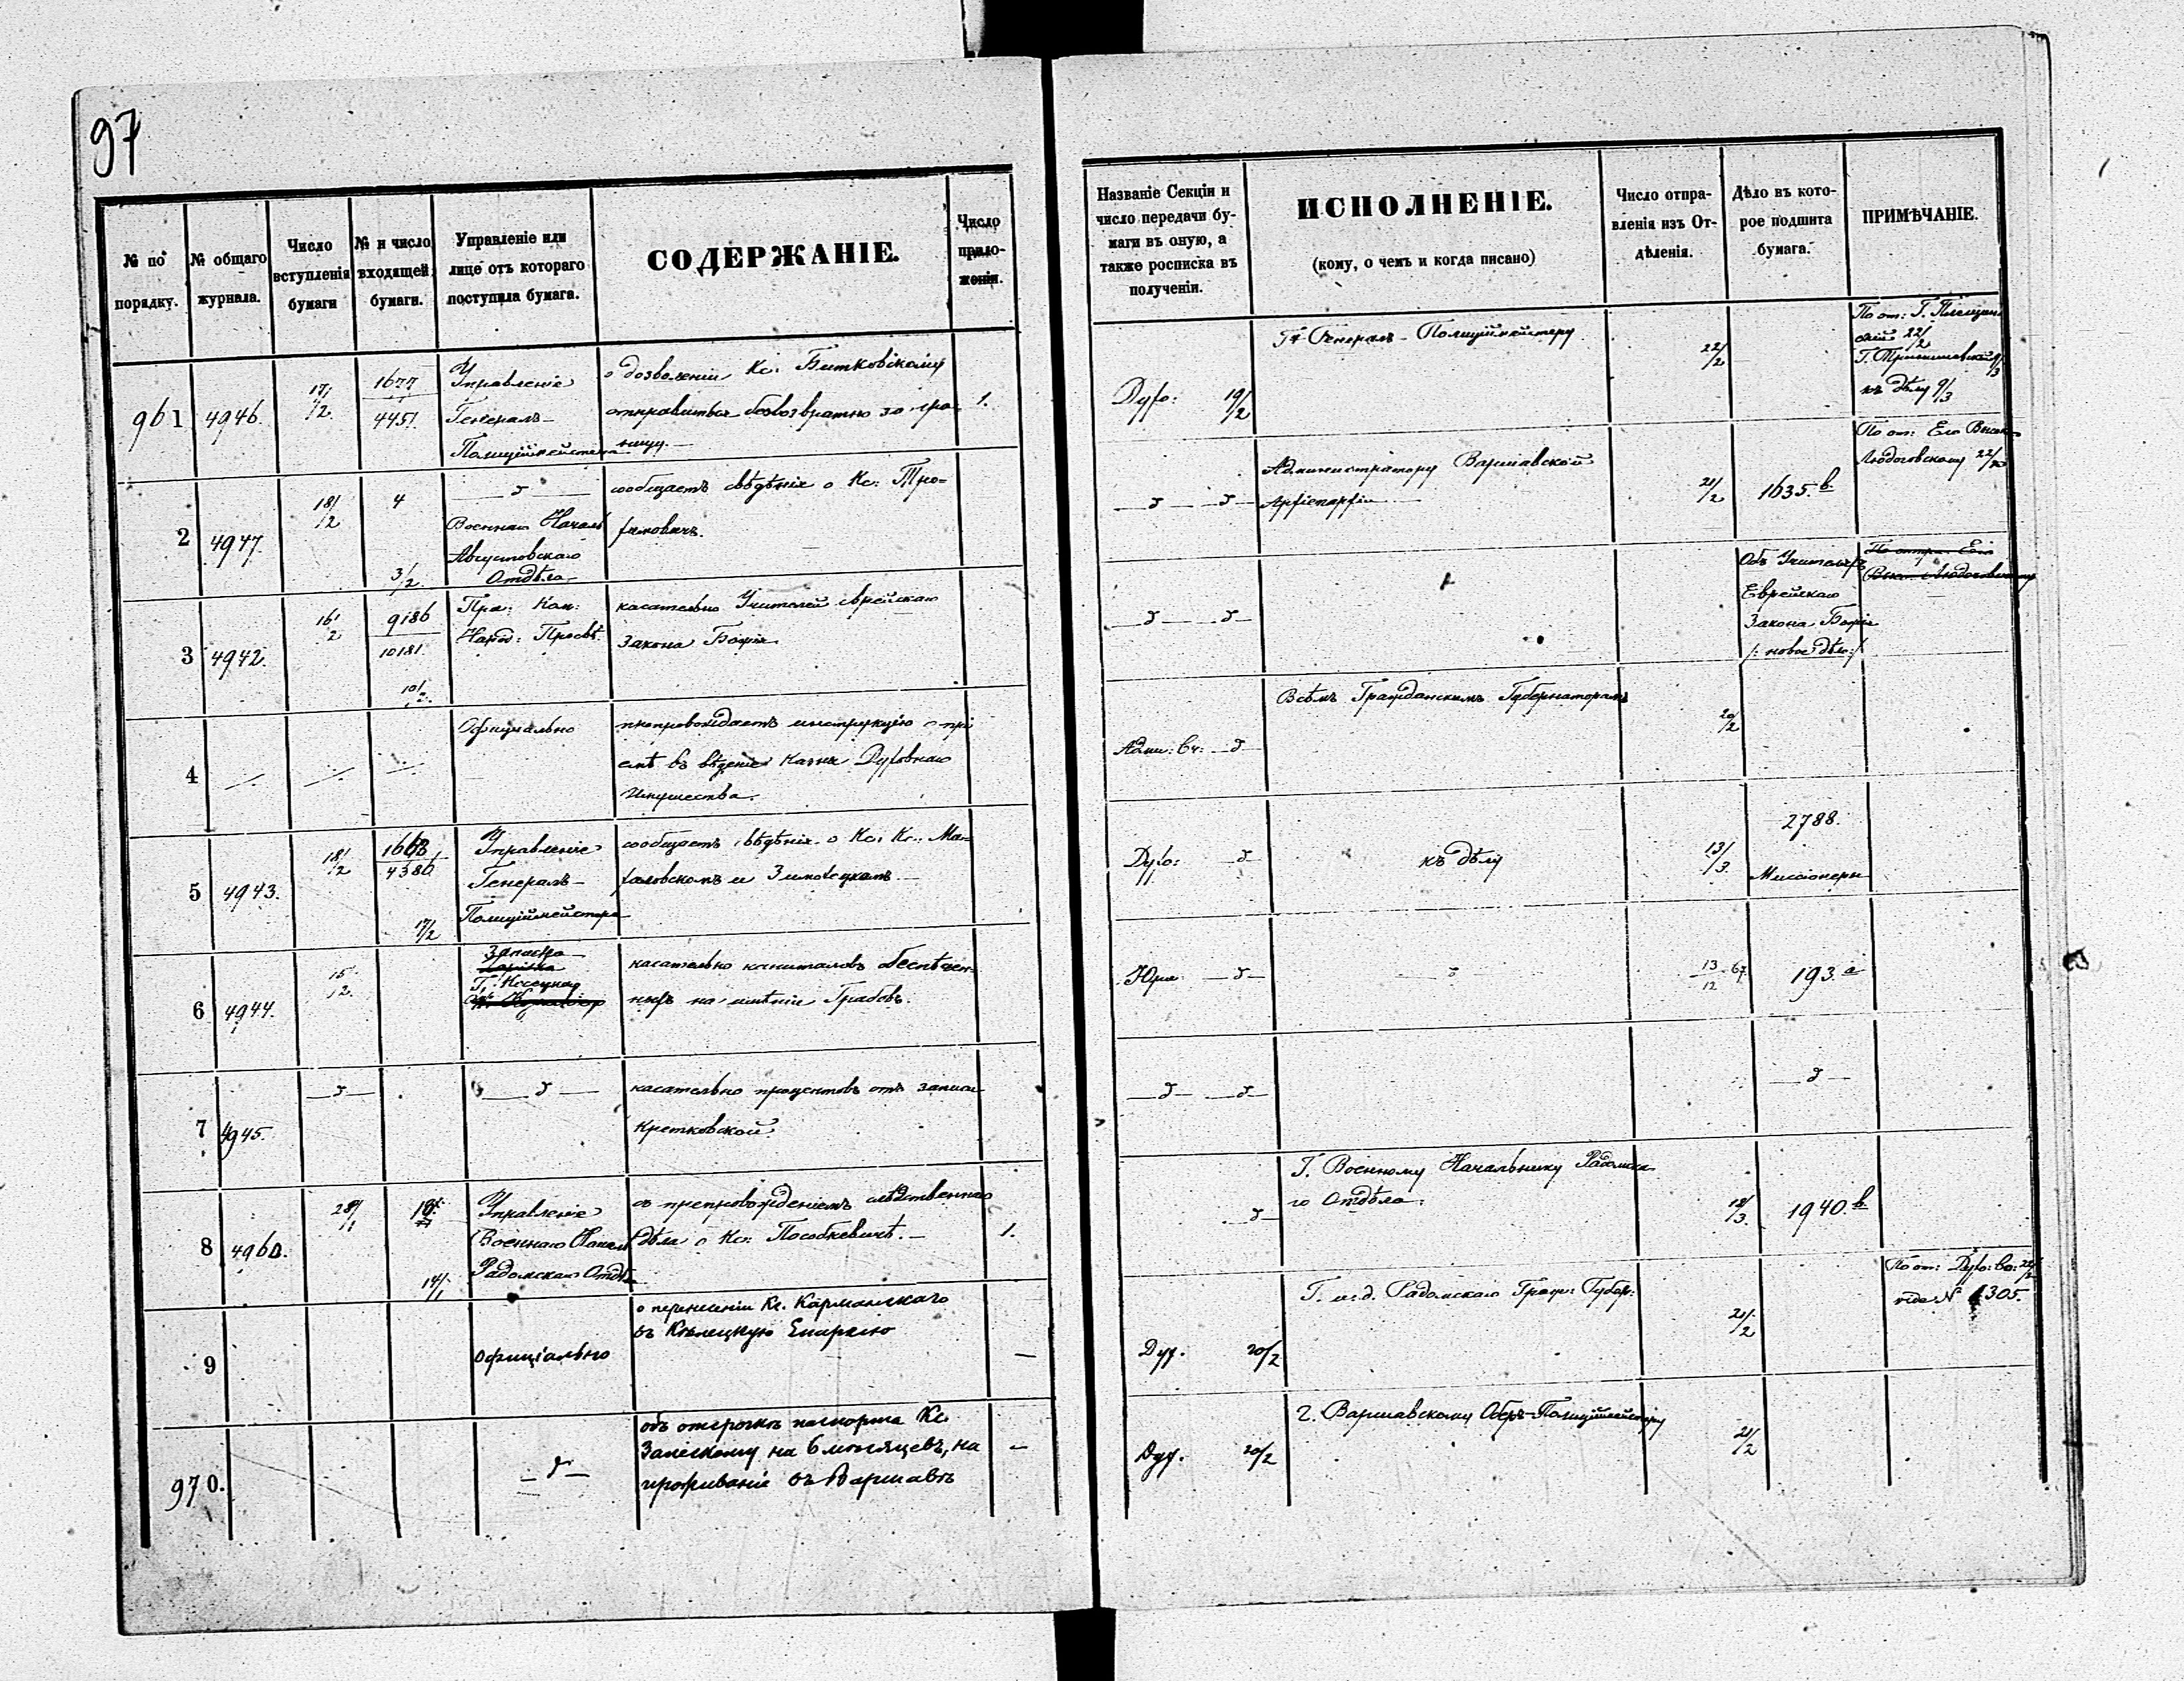 97
№ по порядку.
№ общаго журнала.
Число вступленія бумаги
№ и число входящей бумаги.
Управленіе или лице отъ котораго поступила бумага.
СОДЕРЖАНІЕ.
Число приложенія.
Названіе Секціи и число передачи бумаги въ оную, а также росписка въ полученіи.
ИСПОЛНЕНІЕ.
(кому, о чемъ и когда писано)
Число отправленія изъ Отдѣленія.
Дѣло въ которое подшита бумага.
ПРИМѢЧАНІЕ.
961
4946.
17/2.
1677
4451.
Управленіе
Генералъ-
Полиціймейстера
о дозволеніи Кс: Битковскому
отправиться безвозвратно за гра-
ницу.—
1.
Духо: 19/2
Генералъ-Полиціймейстеру
22/2
По от: Г.
22/2
къ дѣлу 9/3
2
4947.
18/2
4
3/2
— д —
Военнаго Началь
Августовскаго
Отдѣла
сообщаетъ свѣдѣнія о Кс: Тро-
фимовичъ.
— д — д —
Администратору Варшавской
Архіепархіи —
21/2
1635.в.
По от: Его Высок
Людоговскому 22/
3
4942.
16/2
9186
10181.
10/2.
Пра: Ком:
Народ: Просвѣ.
касательно Учителей еврейскаго
Закона Божія
— д — д —
Объ Учителяхъ
Еврейскаго
Закона Божія
/: новое дѣло:/
4
Официально
препровождаетъ инструкцію о прі
емѣ въ вѣденіе казны Духовнаго
Имущества.
Адми: Сч: — д —
Всѣмъ Гражданскимъ Губернаторамъ
20/2
5
4943.
18/2
4380
17/2
Управленіе
Генералъ-
Полиціймейстера
сообщаетъ свѣдѣнія о Кс: Кс: Ма-
и —
Духо: — д
къ дѣлу
13/3.
2788.
Миссіонеры
6
4944.
15/2.
Записка
касательно капиталовъ обеспѣчен-
ныхъ на имѣніи Грабовъ.
Юри: — д —
13/12 67
193.а
7
4945.
— д —
— д —
касательно процентовъ отъ записи
Кретковской.
— д — — д —
— д —
8
4960.
28/1
14/1
Управленіе
Военнаго Началь
Радомскаго Отдѣ
съ препровожденіемъ слѣдственнаго
дѣла о Кс: Пособкевичѣ.—
1.
— д —
Г. Военному Начальнику Радомска
го Отдѣла.
18/3.
1940.в.
9
официально
о перенесеніи Кс. Карманскаго
въ Кѣлецкую Епархію
—
Дух. 20/2
Г. и.д. Радомскаго Граж: Губер:
21/2
По от: Духо: Со:
vide № 1305.
970.
— д —
объ отсрочкѣ паспорта Кс.
Залескому на 6 мѣсяцевъ, на
проживаніе въ Варшавѣ
—
Дух. 20/2
Г. Варшавскому Оберъ-Полиціймейстеру
21/2